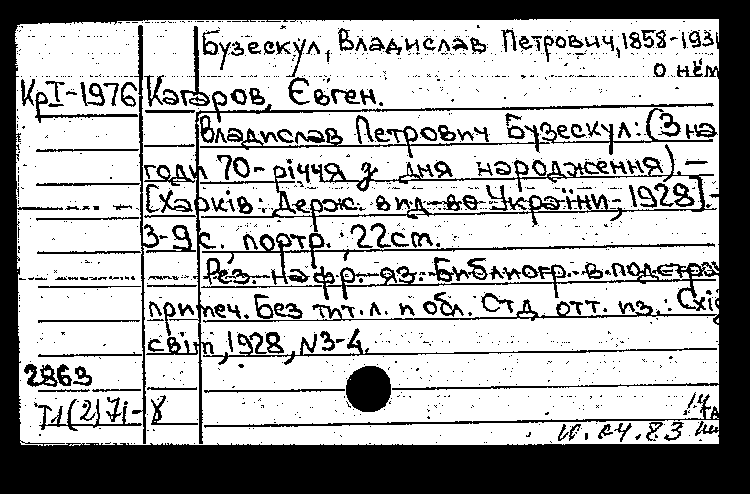 Бузескул, Владислав Петрович, 1858-1931
о нём
КрI-1976 Кагаров, Євген.
Владислав Петрович Бузескул: (З на
годи 70-річчя з дня народження). —
[Харків: Держ. вид-во України, 1928]. -
3-9 с. портр.; 22 cm.
Рез. на фр. яз. Библиогр. в подстроч
примеч. Без тит. л. и обл. Отд. отт. из.: Схід
світ, 1928, N3-4.
2863
Т1(2)71-8
10.04.83